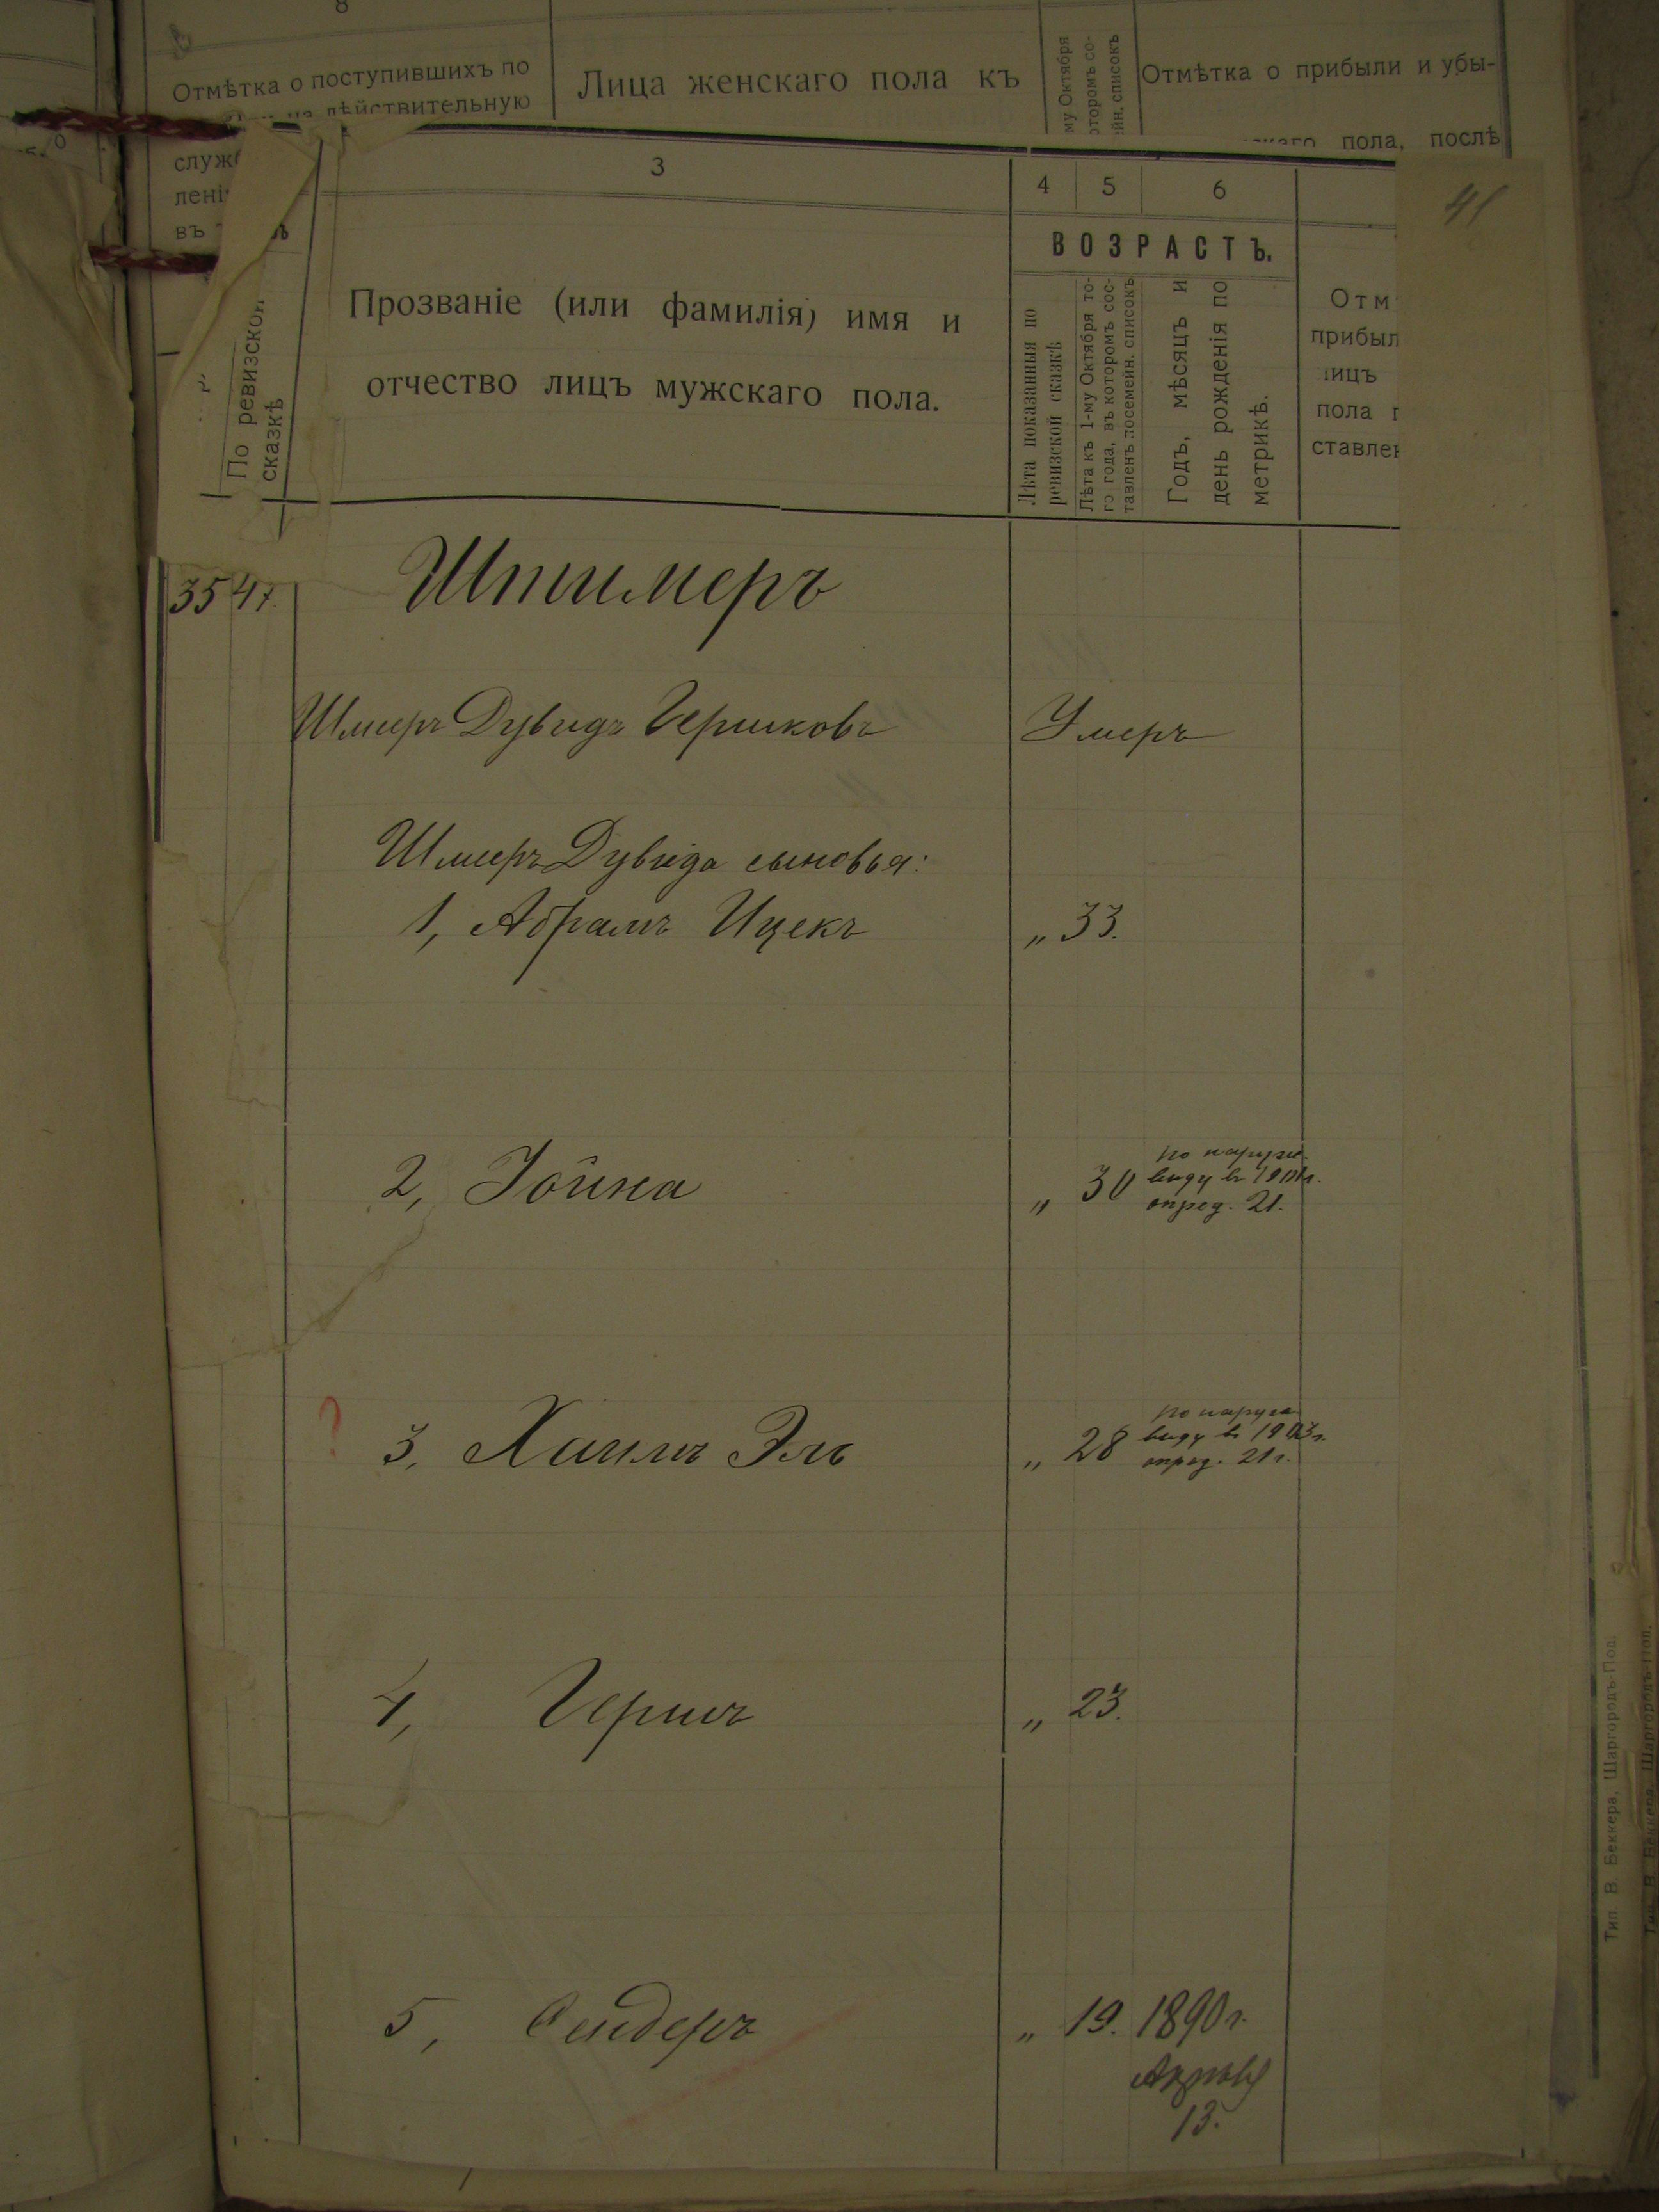 8
Отмѣтка о поступившихъ по
на дѣйствительную
служ
лені
въ
Лица женскаго пола къ
му Октября
оторомъ со-
ейн. списокъ
Отмѣтка о прибыли и убы-
пола, послѣ
3
4 5 6
41
ВОЗРАСТЪ.
По ревизской
сказкѣ
Прозваніе (или фамилія) имя и
отчество лицъ мужскаго пола.
Лѣта показанныя по
ревизской сказкѣ
Лѣта къ 1-му Октября то-
го года, въ которомъ сос-
тавленъ посемейн. списокъ
Годъ, мѣсяцъ и
день рожденія по
метрикѣ.
Отм
прибыл
лицъ
пола п
ставлен
35 47. Штимеръ
Шмеръ Дувидъ Гершковъ Умеръ
Шмеръ Дувида сыновья:
1, Абрамъ Ицекъ „ 33.
2, Іойна „ 30 по наружн.
виду въ 1901г.
опред. 21.
? 3, Хаимъ Эль „ 28 по наруж
виду въ 1903г.
опред. 21г.
4, Гершъ „ 23.
5, Сендеръ „ 19. 1890г.
13.
Тип. В. Беккера, Шаргородъ-Под.
Тип. В. Беккера, Шаргородъ-Под.